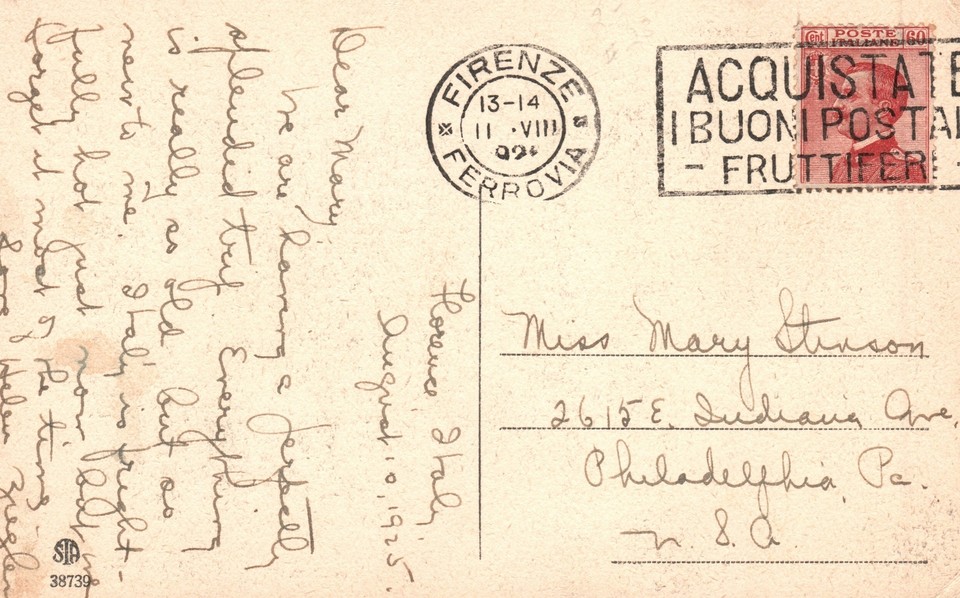 FIRENZE
13-14
11 .VIII
FERROVIA
Cent POSTE 60
ITALIANE
ACQUISTATE
I BUONI POSTAL
- FRUTTIFERI -
Florence Italy
August 10, 1925.
Dear Mary,
We are having a perfectly
splendid trip. Everything
is really so old but so
new to me. Italy is fright-
fully hot just now but we
forget it most of the time
Love Helen Ziegler
Miss Mary Stinson
2615 E. Indiana Ave.
Philadelphia, Pa.
U. S. A.
STA
38739